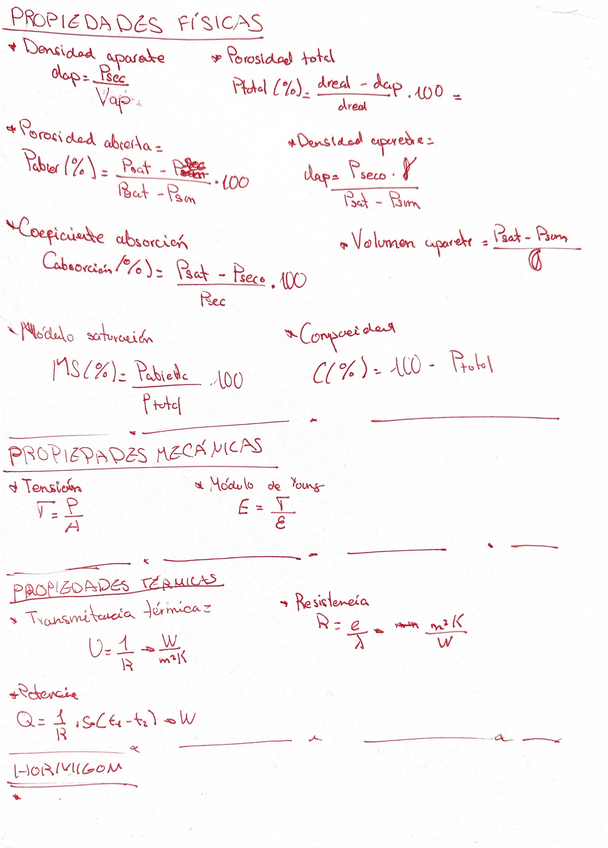 PROPIEDADES FÍSICAS
* Densidad aparete
dap = Psec / Vap
* Porosidad total
Ptotal (%) = dreal - dap / dreal . 100 =
* Porosidad abierta =
Pabier (%) = Psat - Psec / Psat - Psum . 100
* Densidad aparete =
dap = Pseco . ρ / Psat - Psum
* Coeficiente absorción
Cabsorción (%) = Psat - Pseco / Psec . 100
* Volumen aparete = Psat - Psum / ρ
* Módulo saturación
MS (%) = Pabierta / Ptotal . 100
* Compacidad
C(%) = 100 - Ptotal
PROPIEDADES MECÁNICAS
* Tensión
σ = P / A
* Módulo de Young
E = σ / ε
PROPIEDADES TÉRMICAS
* Transmitancia térmica =
U = 1 / R → W / m²K
* Resistencia
R = e / λ → m²K / W
* Potencia
Q = 1 / R . S . (t1 - t2) → W
HORMIGON
*